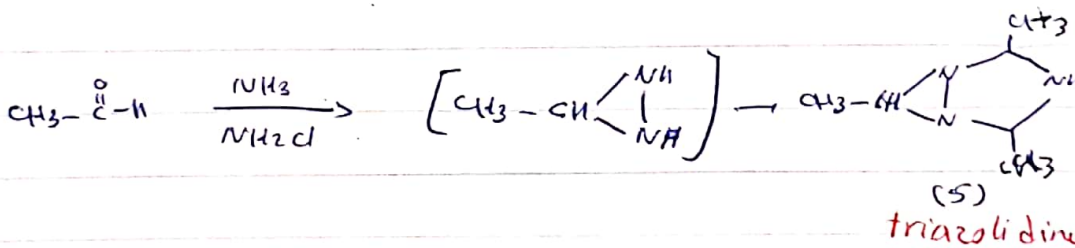 CH3-C(=O)-H  NH3 / NH2Cl →  [CH3-CH<NH|NH] → CH3-CH<N|N  CH3  NH  CH3
(5)
triazolidine